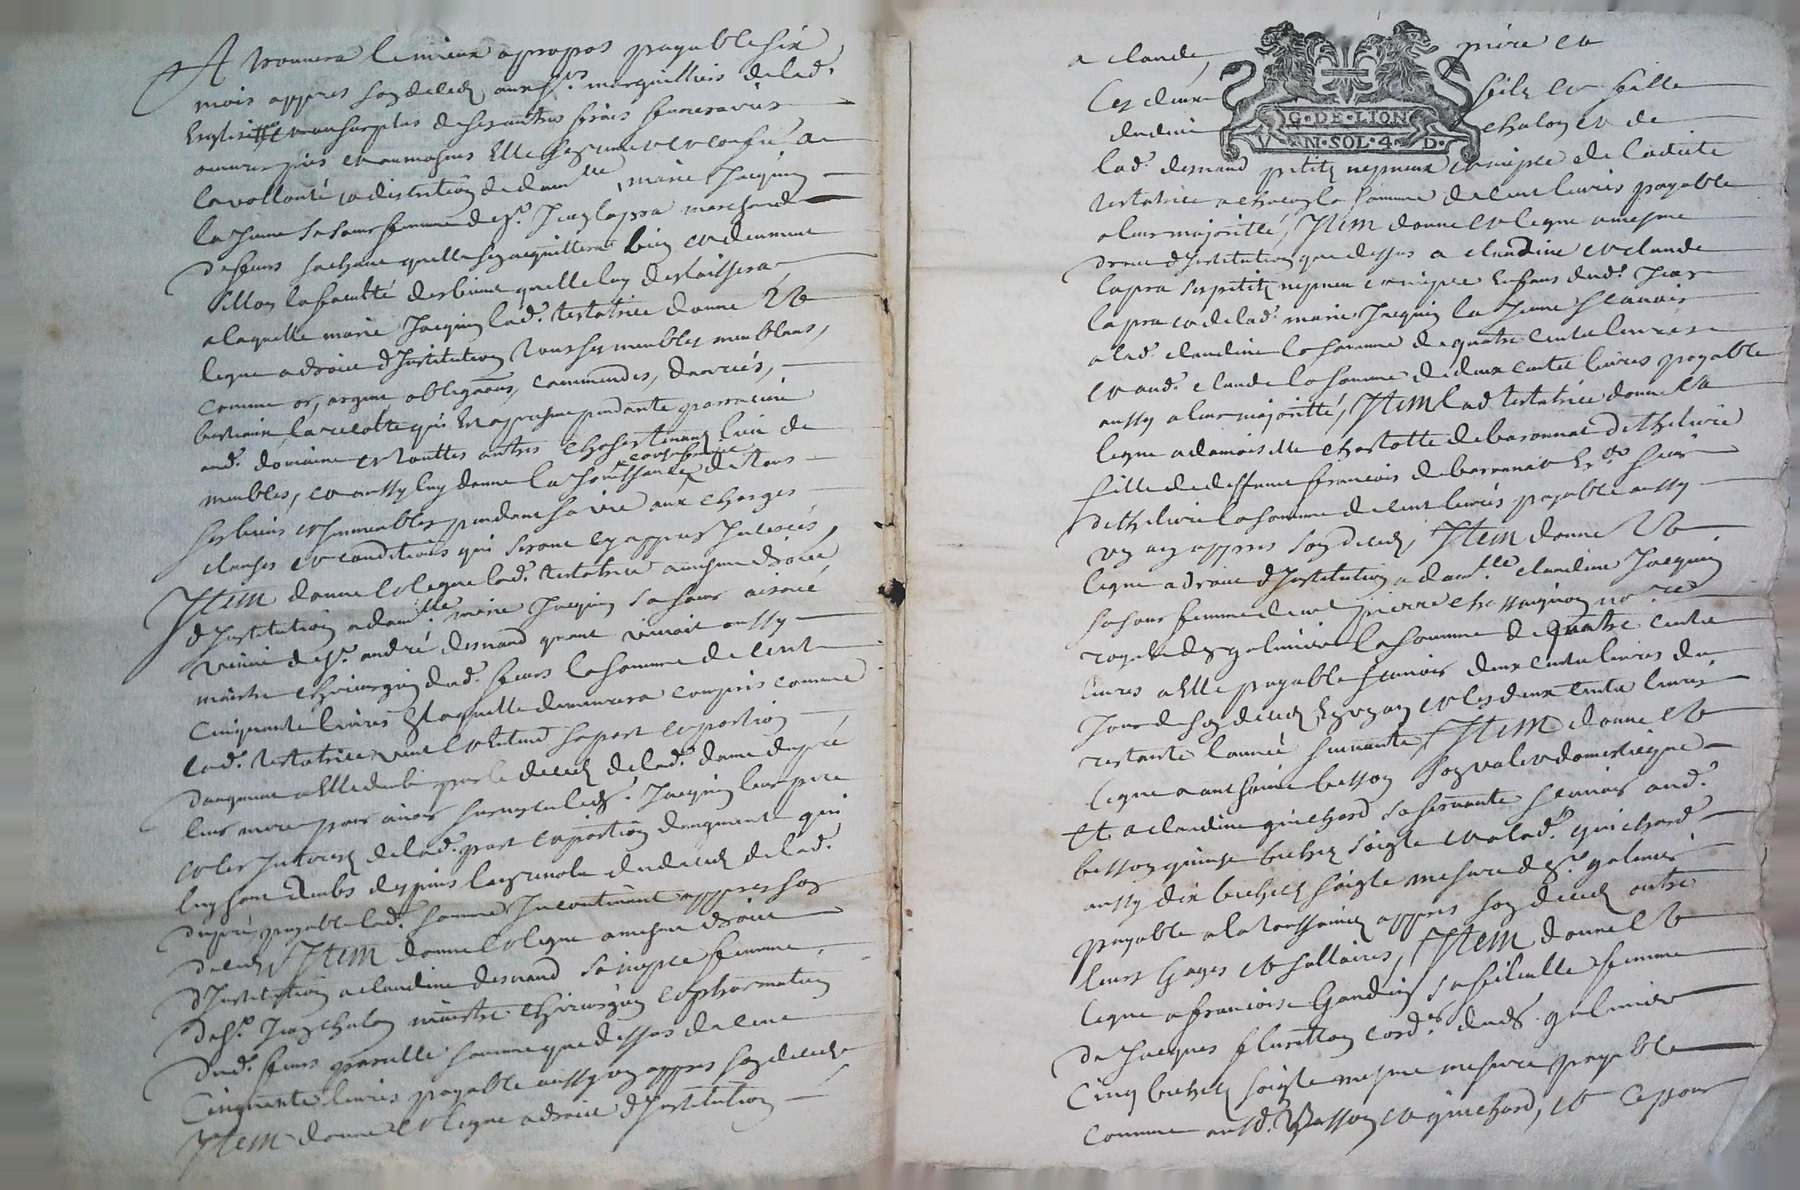 trouvera le mieux a propos payable six
mois appres son deced aux srs marguilliers de lad.
Eglise et au surplus de ses autres frais funeraires
œuvres pies et aumosnes Elle sen remet et confie a
la vollonté et discretion de damlle marie Jacquin
la Jeune sa sœur femme de sr. Jean lapra marchand
de feurs sachant quelle sen acquittera bien et deument
sellon la faculté des biens quelle luy delaissera,
a laquelle marie Jacquin lad. testatrice donne et
legue a droit d'Institution tous ses meubles meublans,
comme or, argent obligaons, commandes, danrées,
bestiaux la recolte qui sera pendante par racine
aud. domaine et touttes autres choses tenant lieu de
meubles, et aussy luy donne la Jouissance de tous
ses biens et Immeubles pendant sa vie aux charges
clauses et conditions qui seront cy appres Inserés,
Item donne et legue lad. testatrice a mesme droit
d'Institution a damlle marie Jacquin sa sœur aisnée
veuve de sr. andré desnaud quant vivoit aussy
maistre chirurgien dud. feurs la somme de cent
cinquante livres En laquelle demeurera compris comme
lad. testatrice veut et entend sa part et portion
daugment a Elle deub par le deced de lad. dame dupré
leur mere pour avoir survescu led. sr. Jacquin leur pere
et les Interest de lad. part et portion daugment qui
luy sont deubs depuis le deced de lad.
dupré payable lad. somme Incontinant appres son
deced, Item donne et legue a mesme droit
d'Institution a claudine desnaud sa niepce femme
de sr. Jean chalon maistre chirurgien et pharmatien
dud. feurs pareille somme que dessus de cent
cinquante livres payable aussy un an appres son deced
Item donne et legue a droit d'Institution
a claude, pierre et
G·DE·LION
V N·SOL·4·D·
les deux fils et fille
dudit chalon et de
lad. desnaud petits nepveux et niepce de ladite
testatrice a chacun la somme de cent livres payable
a leur majoritté, Item donne et legue a mesme
droit d'Institution que dessus a claudine et claude
lapra ses petits nepveu et niepce Enfans dud. Jean
lapra et de lad. marie Jacquin la Jeune scavoir
a lad. claudine la somme de quatre cents livres
et aud. claude la somme de deux cents livres payable
aussy a leur majoritté, Item lad. testatrice donne et
legue a damoiselle charlotte de baronnat de theliere
fille de deffunt françois de baronnat Er. sieur
de theliere la somme de cent livres payable aussy
un an appres son deced, Item donne et
legue a droit d'Institution a damlle. claudine Jacquin
sa sœur femme de me pierre chassaignon no.re
royal de st galmier la somme de quatre cents
livres a Elle payable scavoir deux cents livres du
Jour de son deced En un an et les deux cents livres
restante l'année suivante, Item donne et
legue a anthoine besson son valet domestique
Et a claudine guichard sa servante scavoir aud.
besson quinze bichets soigle et a lad. guichard
aussy dix bichets soigle mesure de st. galmier
payable a la toussaints appres son deced outre
leurs gages et sallaires, Item donne et
legue a françoise gaudin sa filleulle femme
de Jacques fleuretton cord.er dud. st. galmier
cinq bichets soigle mesme mesure payable
comme ausd. Besson et guichard, et ce pour